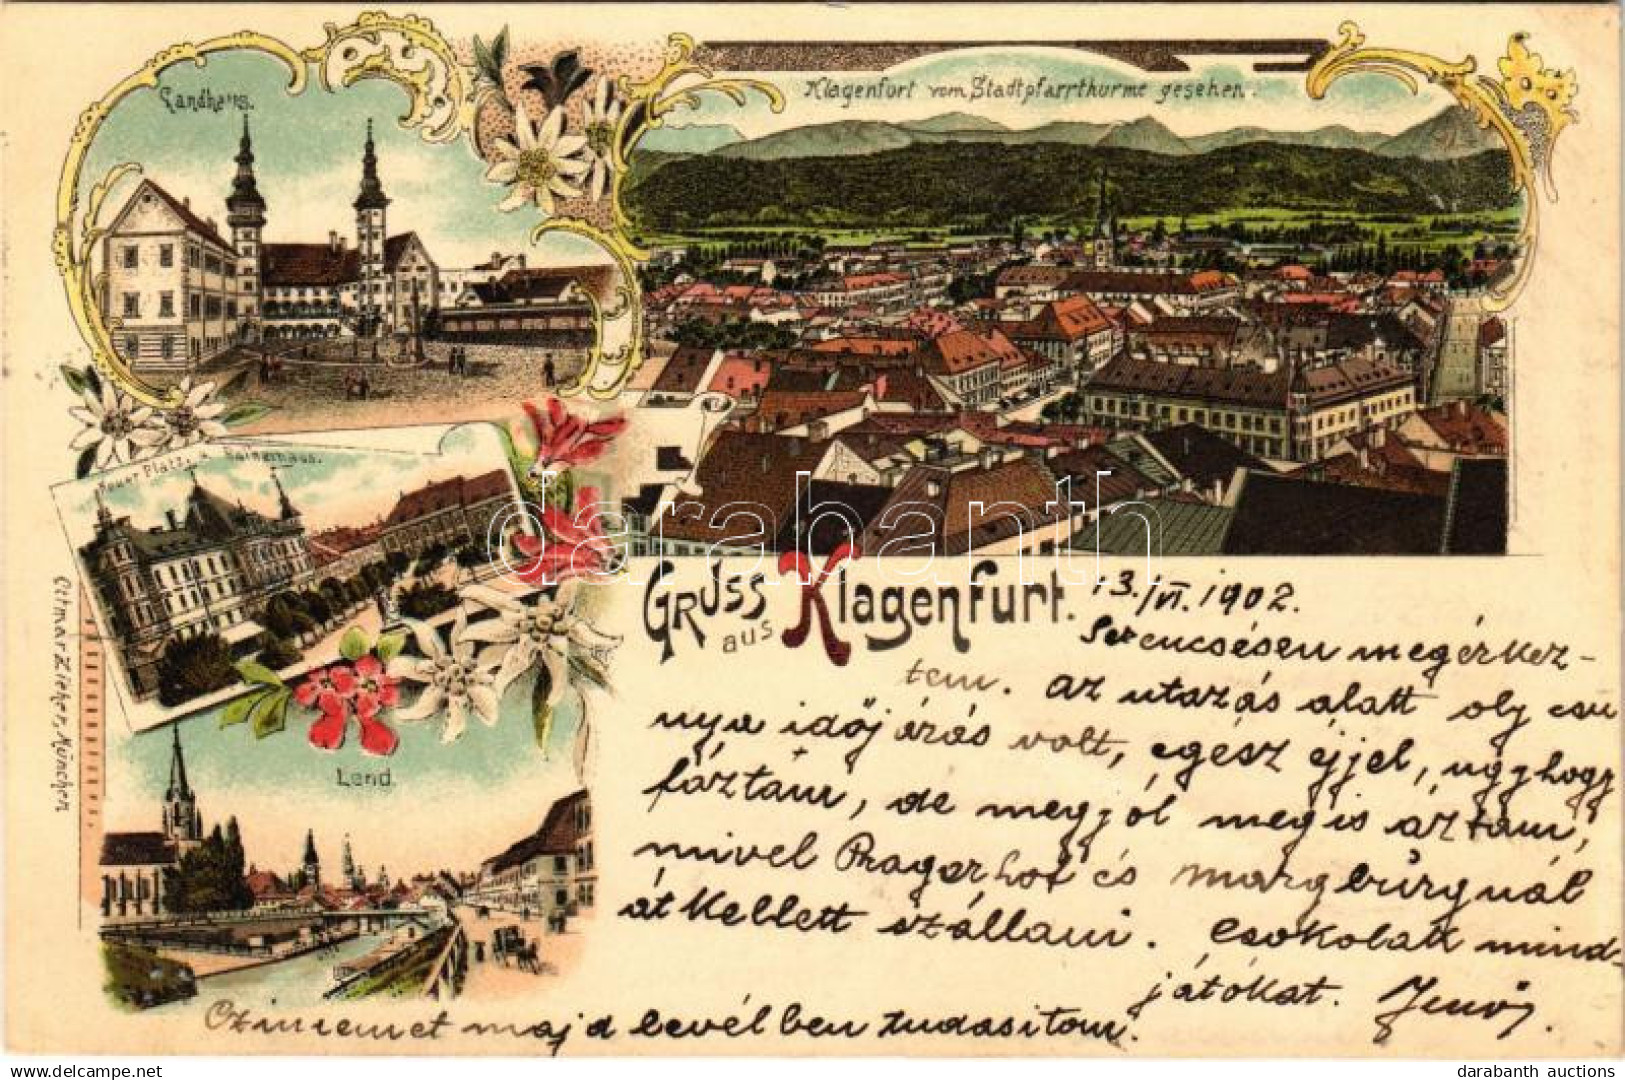 Landhaus.
Klagenfurt vom Stadtpfarrthurme gesehen.
Neuer Platz u. Rainerhaus.
Lend.
Ottmar Zieher, München
Gruss aus Klagenfurt.
13./VI. 1902.
Szerencsésen megérkez-
tem. Az utazás alatt oly csu
nya időjárás volt, egész éjjel, úgyhogy
fáztam, de megjól megis áztam,
mivel Pragerhof és Margburgnál
át kellett szállani. Csokolak mind-
játokat. Jenő.
Czimemet majd levélben tudasitom.
darabanth
delcampe.net
darabanth auctions